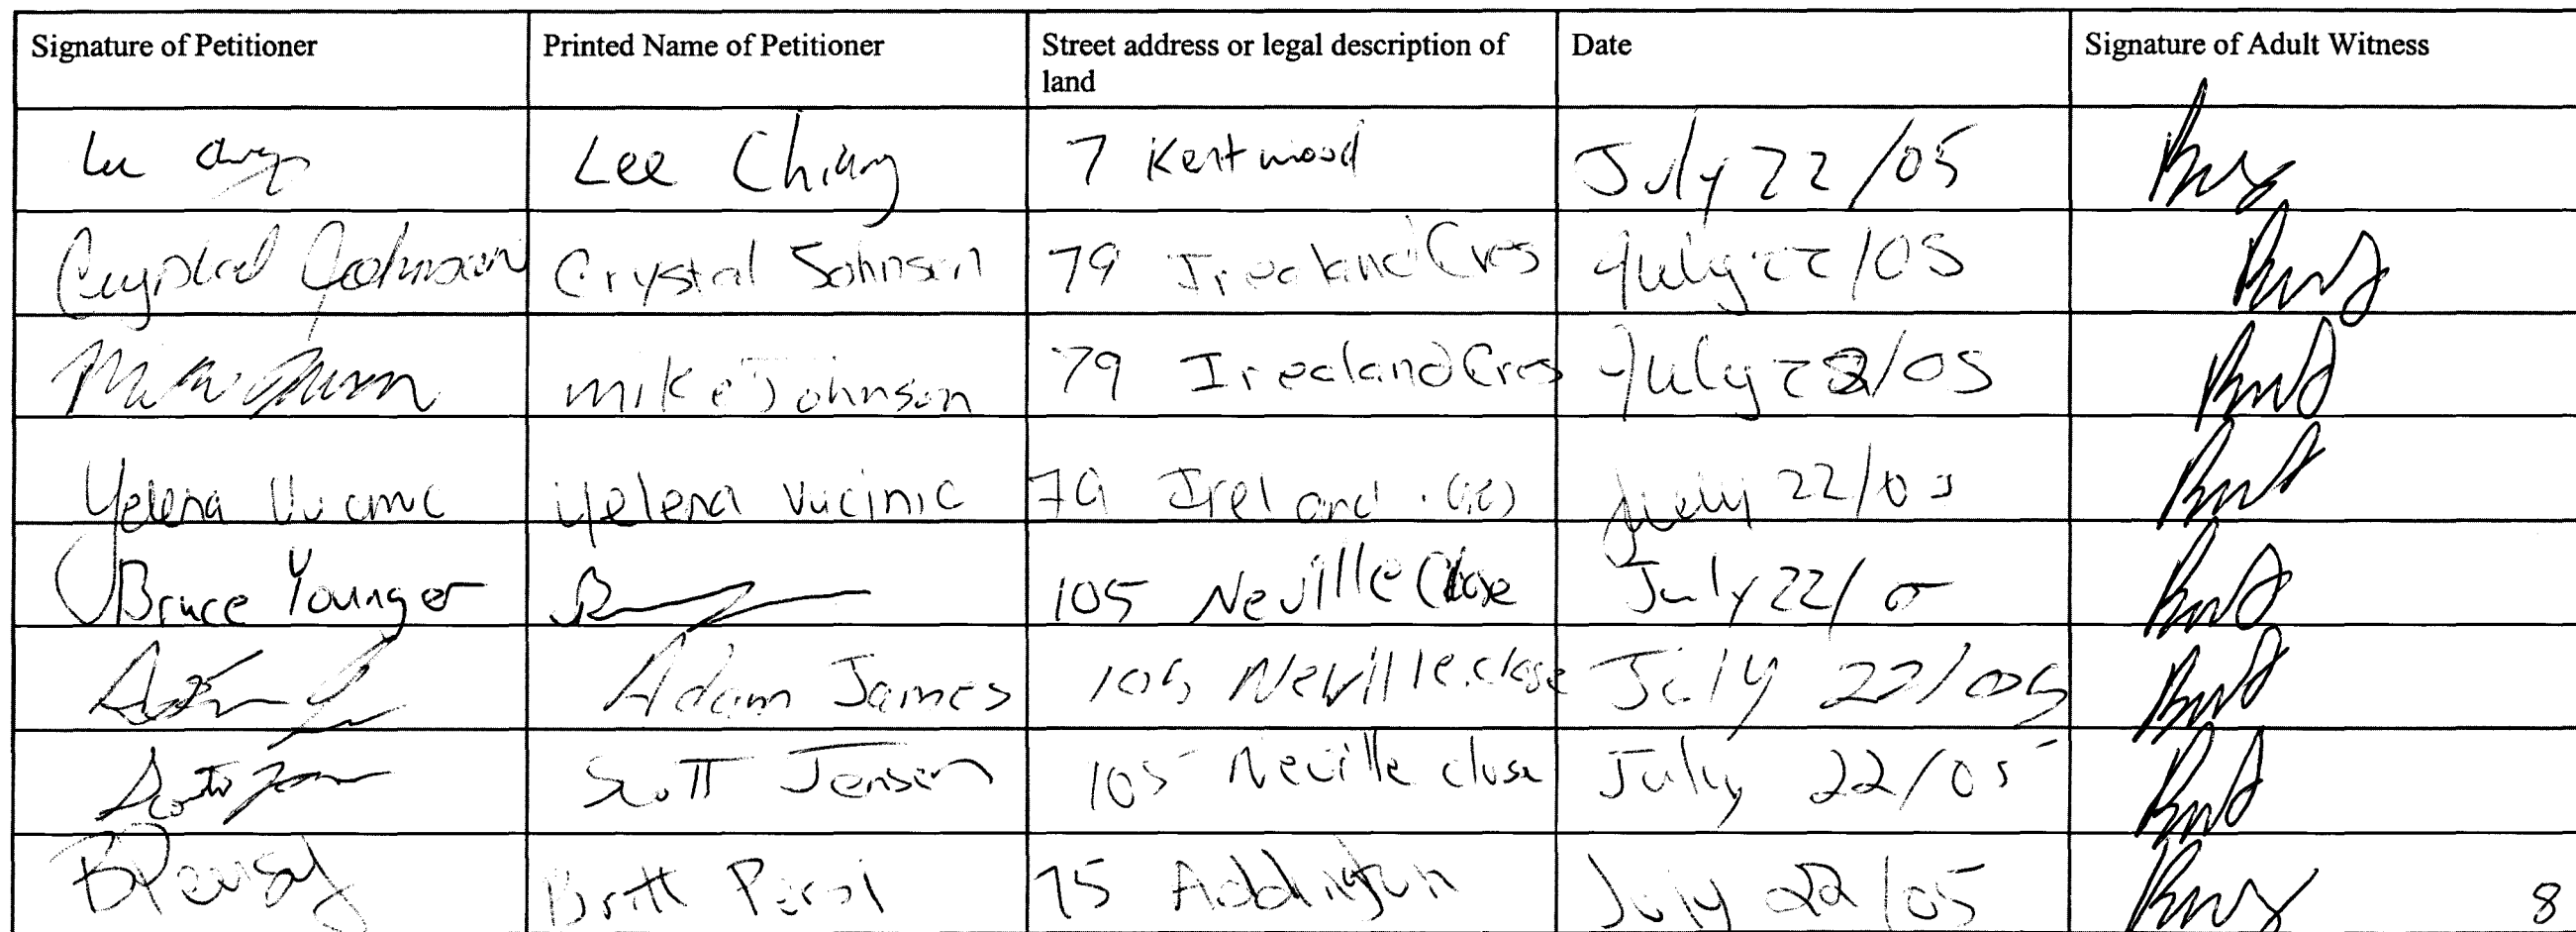 Signature of Petitioner Printed Name of Petitioner Street address or legal description of Date Signature of Adult Witness
land
Lee Chiang 7 Kentwood July 22/05
Crystal Johnson Crystal Johnson 79 Irealand Cres July 22/05
Mike Johnson 79 Irealand Cres July 22/05
Yelena Vucinic Yelena Vucinic 79 Ireland Cres July 22/05
Bruce Younger 105 Neville Close July 22/
Adam James 105 Neville close July 22/05
Scott Jensen 105 Neville close July 22/05
Britt 75 Addington July 22/05 8